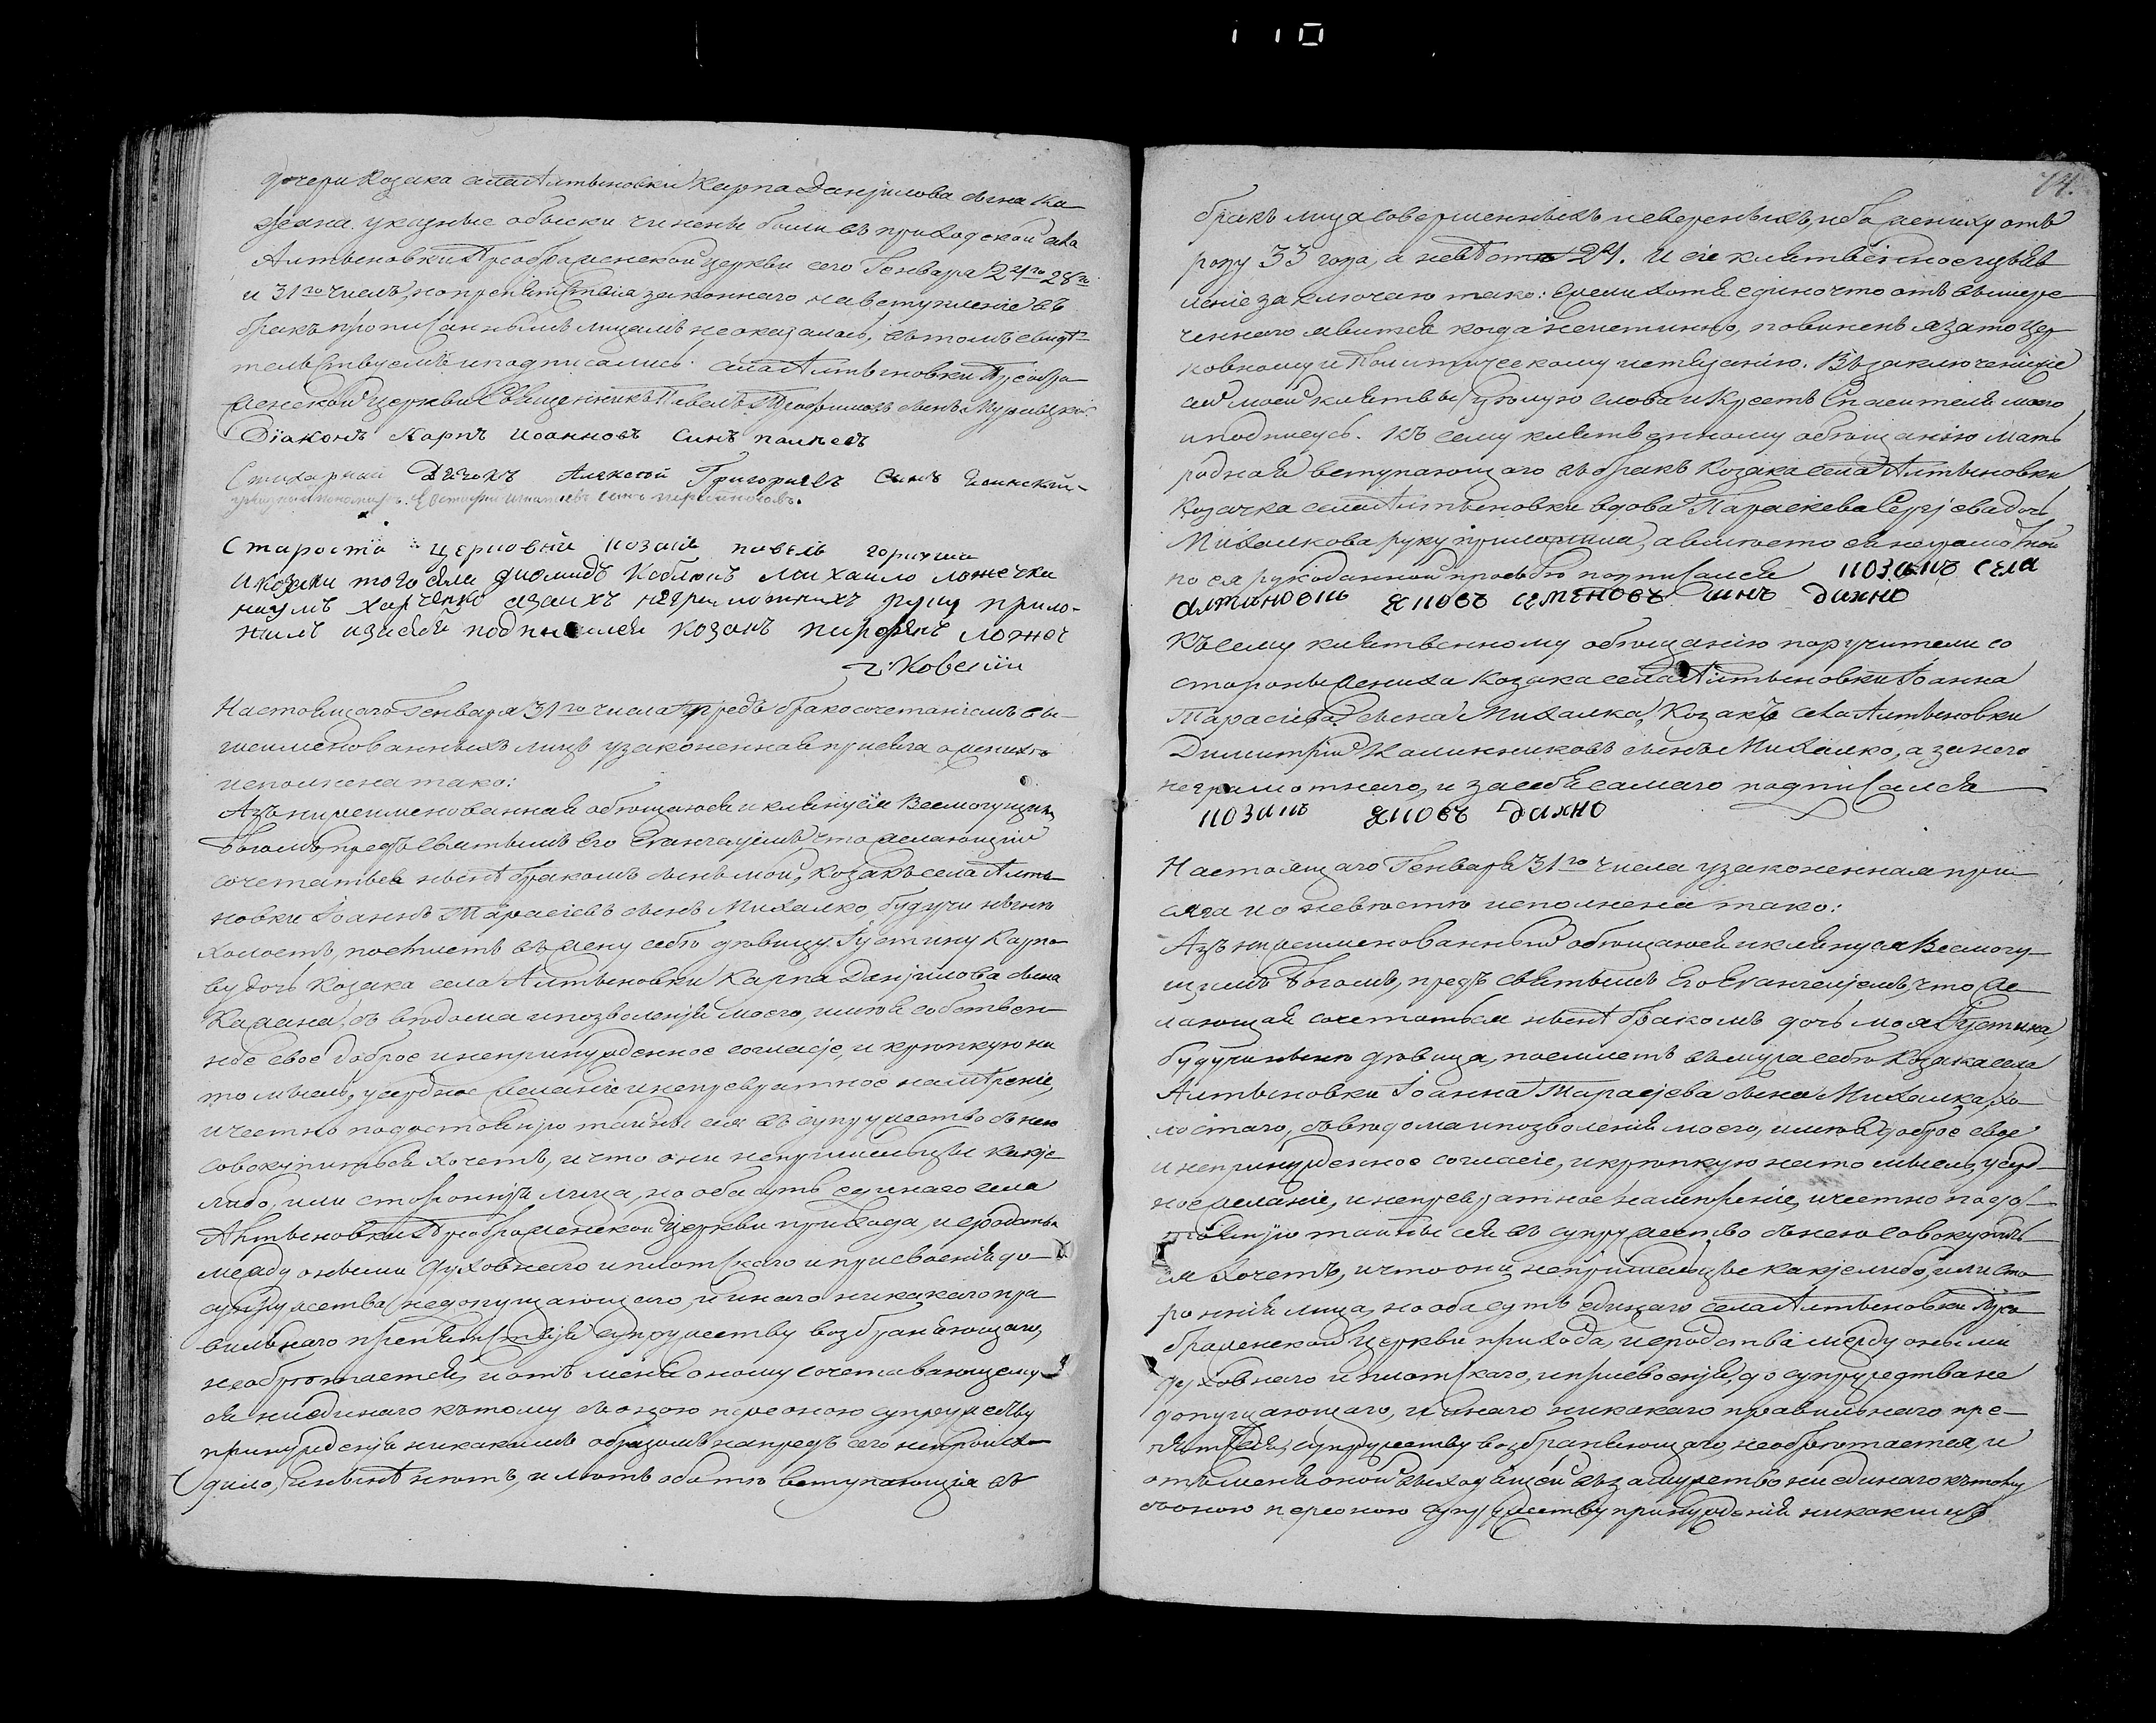 74.
дочери Козака села Алтыновки Карпа Данјилова сына Ка
указные обыски чинены были въ приходской села
Алтыновки Преображенской церкви сего Генваря 24го 28го
и 31го числъ, но препятствія законнаго на вступленіе въ
бракъ прописаннымъ лицамъ не оказалось, въ томъ свидѣ
тельствуемъ и подписались. села Алтыновки Преобра
женской церкви Священникъ Павелъ Трофимовъ сынъ
Діаконъ Карпъ Иоанновъ синъ
Стихарный Дячокъ Алексѣй Григориевъ синъ
Староста церковній козакъ павелъ
и козаки того села диомидъ Михаило
наумъ харченко азаихъ неграмотнихъ руку прило-
жилъ изасебя подписался козакъ
Настоящаго Генваря 31го числа предъ бракосочетаніемъ вы-
шеименованныхъ лицъ узаконенная присяга о женихѣ
исполнена тако:
Азъ нижеименованная обѣщаюся и клянуся Всемогущимъ
Богомъ, предъ святымъ Его Евангеліемъ что желающій
сочетаться нынѣ бракомъ сынъ мой, Козакъ села Алты-
новки Іоаннъ Тарасіевъ сынъ Михалко, будучи нынѣ
холостъ, поемлетъ въ жену себѣ дѣвицу Іустину Карпо-
ву дочь Козака села Алтыновки Карпа Данјилова сына
съ вѣдома и позволенія моего, имѣя собствен-
ное свое доброе и непринужденное согласје, и крѣпкую на
то мысль, усердное желаніе и непревратное намѣреніе,
и честно по достоянію тайны сея въ супружество съ нею
совокупитися хочетъ, и что они непришельцы какје
либо, или сторонніи лица, но оба суть единаго села
Алтыновки Преображенской церкви прихода, и сродства
между оными духовнаго и плотскаго и присвоенія до
супружества недопущающаго, и инаго никакаго пра
вильнаго препятствія супружеству возбраняющаго,
необрѣтается, и отъ меня оному сочетавающему
ся ниединаго къ тому съ оною персоною супружеству
принужденія никакимъ образомъ напредъ сего непроисхо
дило, и нынѣ нѣтъ, и лѣтъ оба то вступающія въ
бракъ лица совершенныхъ и ибо жениху отъ
роду 33 года, а невѣстѣ 24. И сіе клятвенное изъяв
леніе заключаю тако: ежели хотя едино что отъ вышере
ченнаго явится когда неистинно, повиненъ я за то цер
ковному и Политическому истязанію. Въ заключеніе же
сей моей клятвы цѣлую слова и Крестъ Спасителя моего
и подпишусь. Къ сему клятвенному обѣщанію мать
родная вступающаго въ бракъ Козака села Алтыновки
Козачка села Алтыновки вдова Параскева Сергјева дочь
Михалкова руку приложила, а вмѣсто ея неграмотной
по ея рукоданной прозбѣ подписался козакъ села
алтиновки яковъ семеновъ синъ дахно
Къ сему клятвенному обѣщанію поручители со
стороны жениха Козака села Алтыновки Іоанна
Тарасіева сына Михалка, Козакъ села Алтыновки
Димитрій Калинниковъ сынъ Михалко, а за него
неграмотнаго, и за себя самаго подписался
козакъ яковъ дахно
Настоящаго Генваря 31го числа узаконенная при-
сяга и о невѣстѣ исполнена тако:
Азъ нижеименованный обѣщаюся и клянуся Всемогу-
щимъ Богомъ, предъ святымъ Его Евангелјемъ, что же
лающая сочетаться нынѣ бракомъ дочь моя Іустина,
будучи нынѣ дѣвица, поемлетъ въ мужа себѣ Козака села
Алтыновки Іоанна Тарасјева сына Михалка, хо
лостаго, съ вѣдома и позволенія моего, имѣя доброе свое
и непринужденное согласіе, и крѣпкую на то мысль, усерд
ное желаніе, и непревратное намѣреніе, и честно по до
стоянјю тайны сея въ супружество съ нею совокупить
ся хочетъ, и что они непришельцы какје либо, или сто
роннія лица, но оба суть единаго села Алтыновки Прео
браженской церкви прихода, и сродства между оными
духовнаго и плотскаго, и присвоенјя, до супружества не
допущающаго, и инаго никакаго правильнаго пре-
пятствія, супружеству возбраняющаго, необрѣтается, и
отъ меня оной выходящей въ замужество ниединаго къ тому
съ оною персоною супружеству принужденія никакимъ